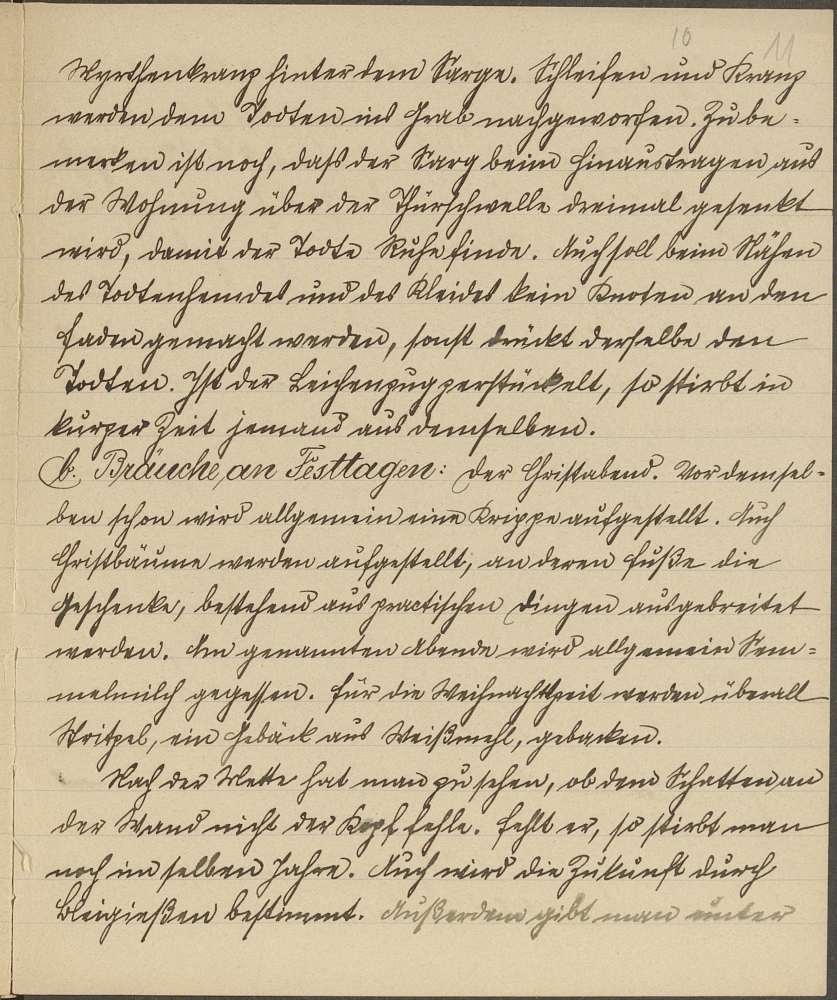 10 11
Myrthenkranz hinter dem Sarge. Schleifen und Kranz
werden dem Todten ins Grab nachgeworfen. Zu be=
merken ist noch, daß der Sarg beim Hinaustragen aus
der Wohnung über der Thürschwelle dreimal gesenkt
wird, damit der Todte Ruhe finde. Auch soll beim Nähen
des Todtenhemdes und des Kleides kein Knoten an den
Faden gemacht werden, sonst drückt derselbe den
Todten. Ist der Leichenzug zerstückelt, so stirbt in
kurzer Zeit jemand aus demselben.
b., Bräuche an Festtagen: Der Christabend. Vor demsel=
ben schon wird allgemein eine Krippe aufgestellt. Auch
Christbäume werden aufgestellt, an deren Fuße die
Geschenke, bestehend aus practischen Dingen ausgebreitet
werden. Am genannten Abende wird allgemein Sem=
melmilch gegessen. Für die Weihnachtszeit werden überall
Stritzel, ein Gebäck aus Weißmehl, gebacken.
Nach der Mette hat man zu sehen, ob dem Schatten an
der Wand nicht der Kopf fehle. Fehlt er, so stirbt man
noch im selben Jahre. Auch wird die Zukunft durch
Bleigießen bestimmt. Außerdem gibt man unter